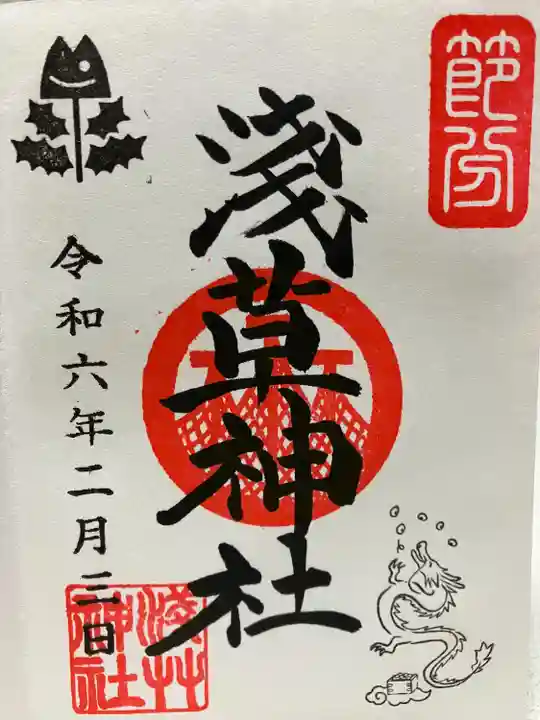 節分
浅草神社
令和六年二月三日
浅草神社